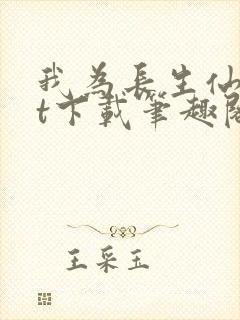 我為長生仙
t下載筆趣閣
王采玉